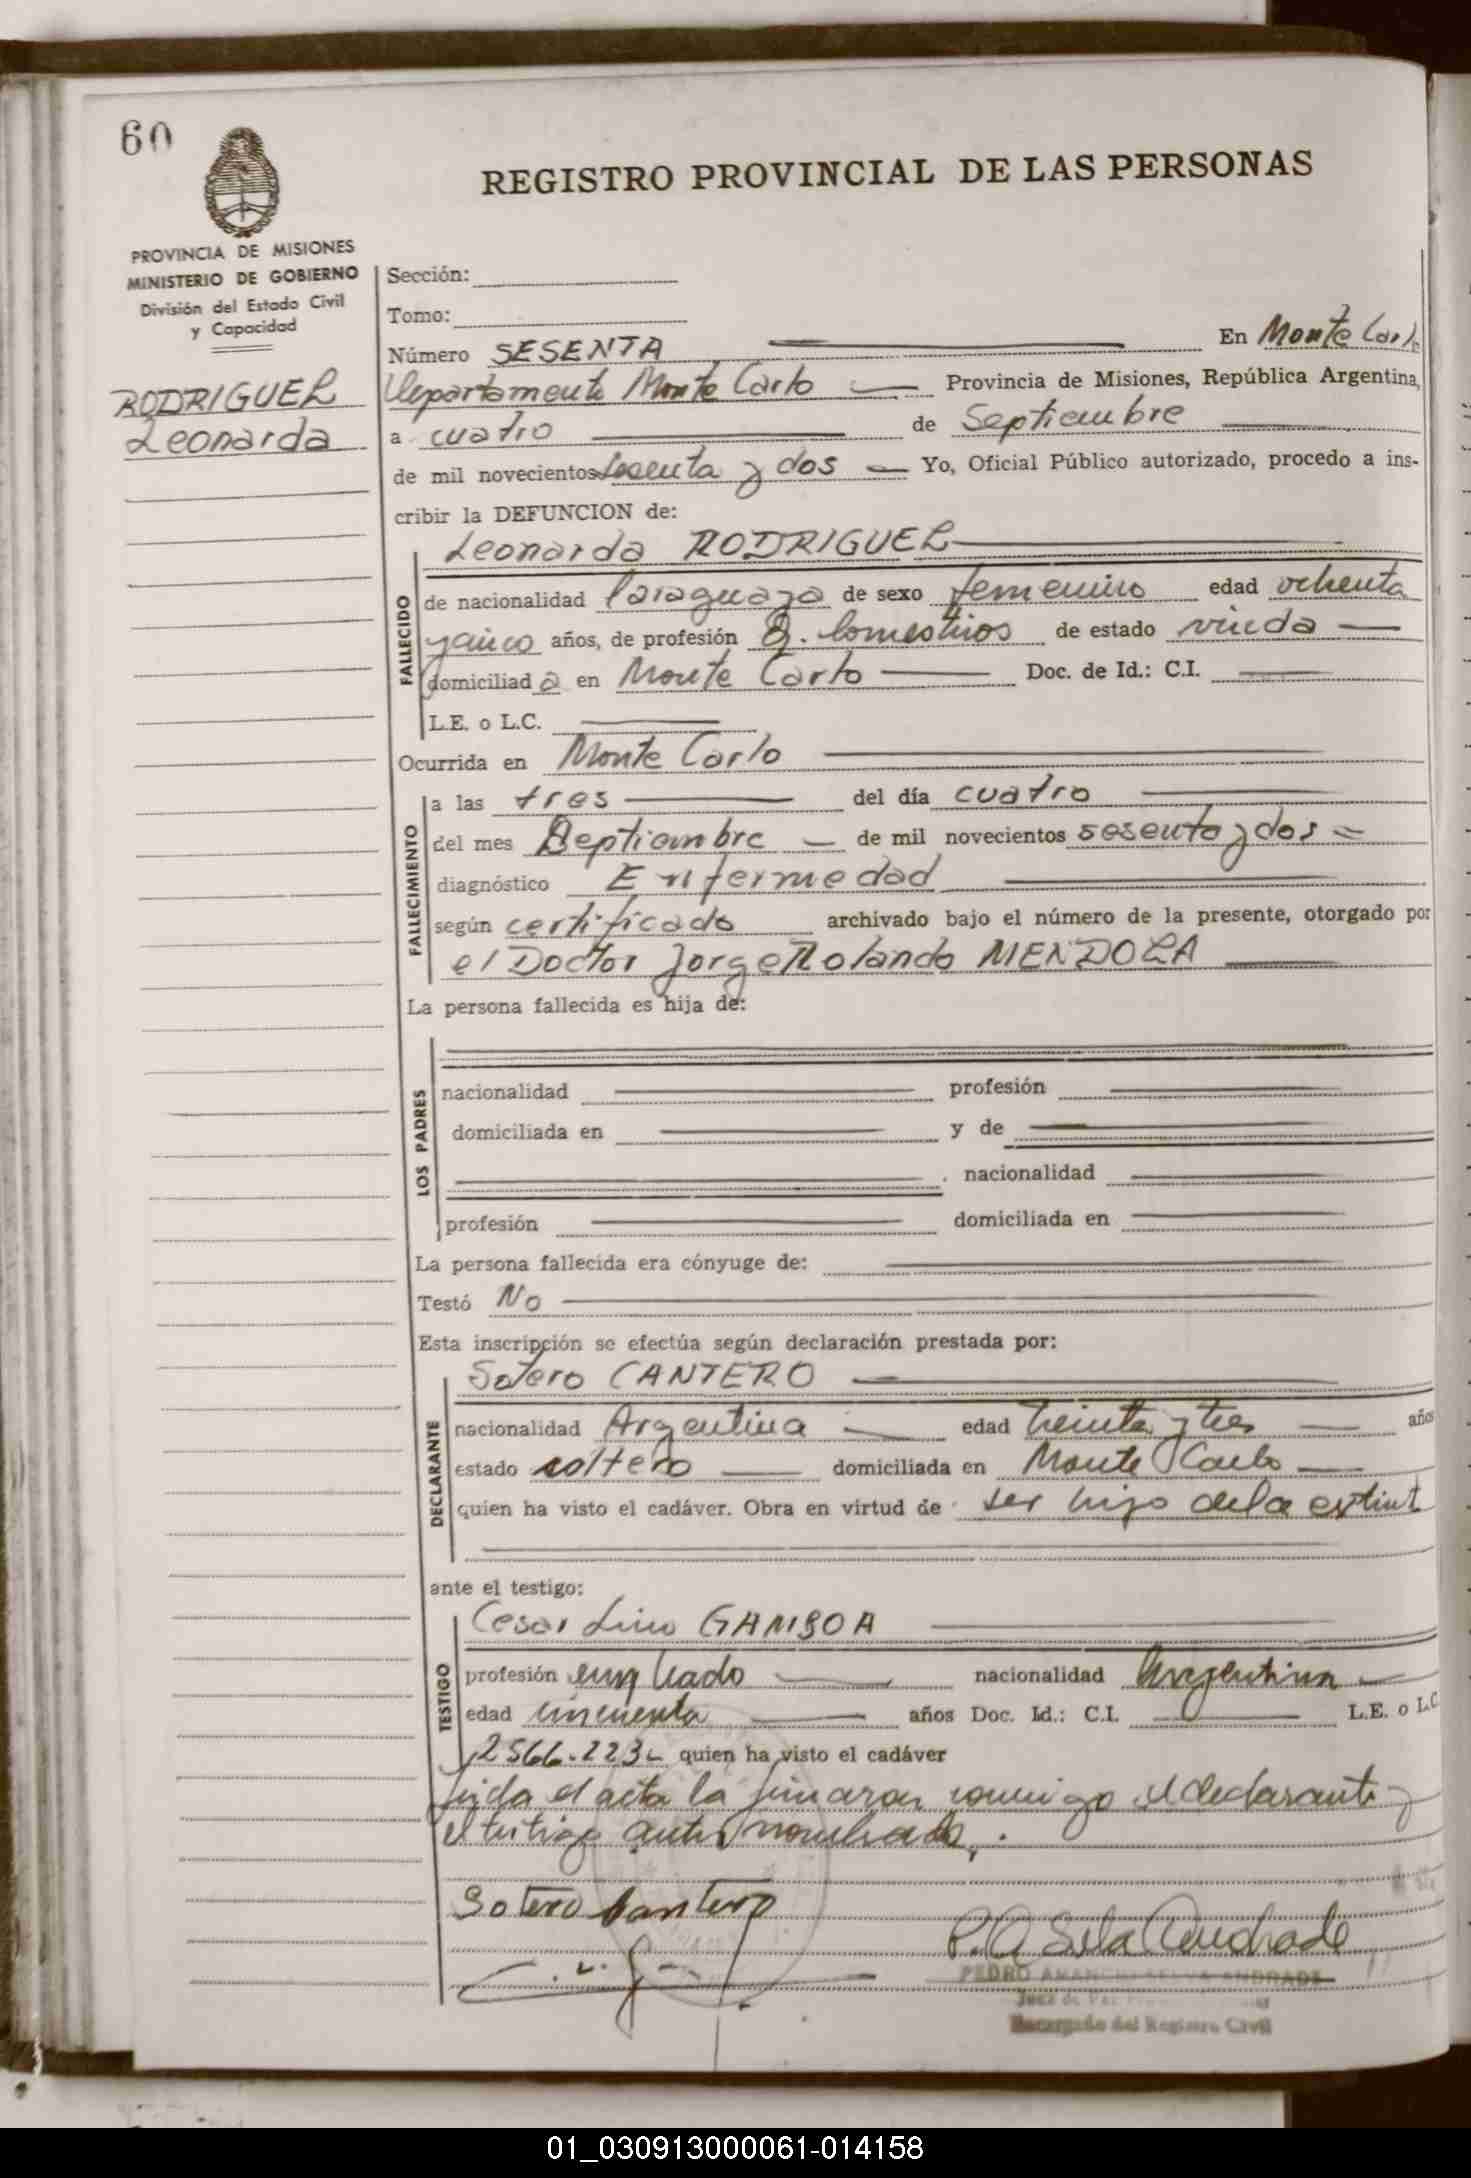 60
REGISTRO PROVINCIAL DE LAS PERSONAS
PROVINCIA DE MISIONES
MINISTERIO DE GOBIERNO
División del Estado Civil
y Capacidad
RODRIGUEZ
Leonarda
Sección:
Tomo:
Número SESENTA En Monte Carlo
Departamento Monte Carlo Provincia de Misiones, República Argentina,
a cuatro de Septiembre
de mil novecientos sesenta y dos Yo, Oficial Público autorizado, procedo a ins-
cribir la DEFUNCION de:
Leonarda RODRIGUEZ
FALLECIDO
de nacionalidad Paraguaya de sexo femenino edad ochenta
y cinco años, de profesión Q. Domesticos de estado viuda
domiciliad a en Monte Carlo Doc. de Id.: C.I.
L.E. o L.C.
Ocurrida en Monte Carlo
FALLECIMIENTO
a las tres del día cuatro
del mes Septiembre de mil novecientos sesenta y dos
diagnóstico Enfermedad
según certificado archivado bajo el número de la presente, otorgado por
el Doctor Jorge Rolando MENDOZA
La persona fallecida es hija de:
LOS PADRES
nacionalidad profesión
domiciliada en y de
nacionalidad
profesión domiciliada en
La persona fallecida era cónyuge de:
Testó No
Esta inscripción se efectúa según declaración prestada por:
Sotero CANTERO
DECLARANTE
nacionalidad Argentina edad treinta y tres años
estado soltero domiciliada en Monte Carlo
quien ha visto el cadáver. Obra en virtud de ser hijo de la extint
ante el testigo:
Cesar Lino GAMBOA
TESTIGO
profesión empleado nacionalidad Argentina
edad cincuenta años Doc. Id.: C.I. L.E. o L.C
2566.223 quien ha visto el cadáver
Leida el acta la firman conmigo el declarante y
el testigo antes nombrado.
Sotero Cantero
P. A Silva Andrade
PEDRO SILVA ANDRADE
Juez de Paz
Encargado del Registro Civil
01_030913000061-014158